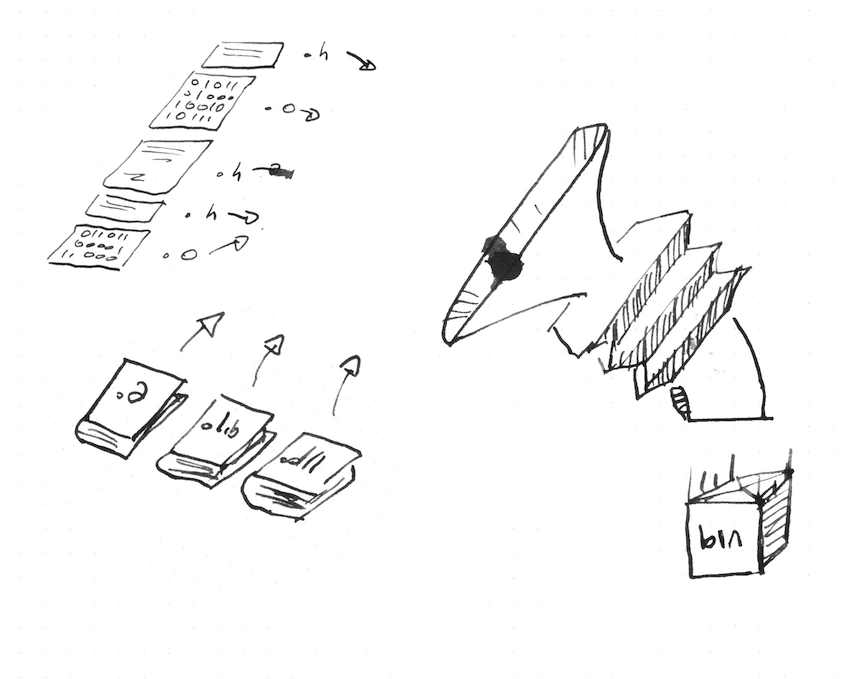 .h
01011
01000
10010
10111
.o
.h
.h
011011
00001
11 000
.o
.a
.lib
.dll
bin